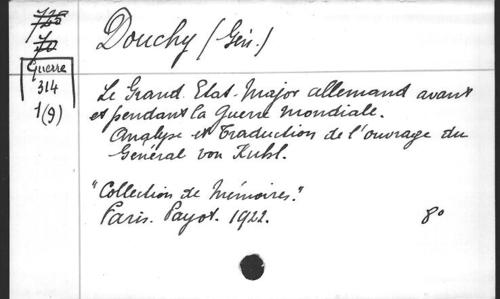 Douchy (Gén.)
Guerre
314
1(9)
Le Grand Etat-Major allemand avant
et pendant la guerre mondiale.
Analyse et Traduction de l'ouvrage du
Général von Kuhl.
"Collection de Mémoires."
Paris. Payot. 1922. 8°